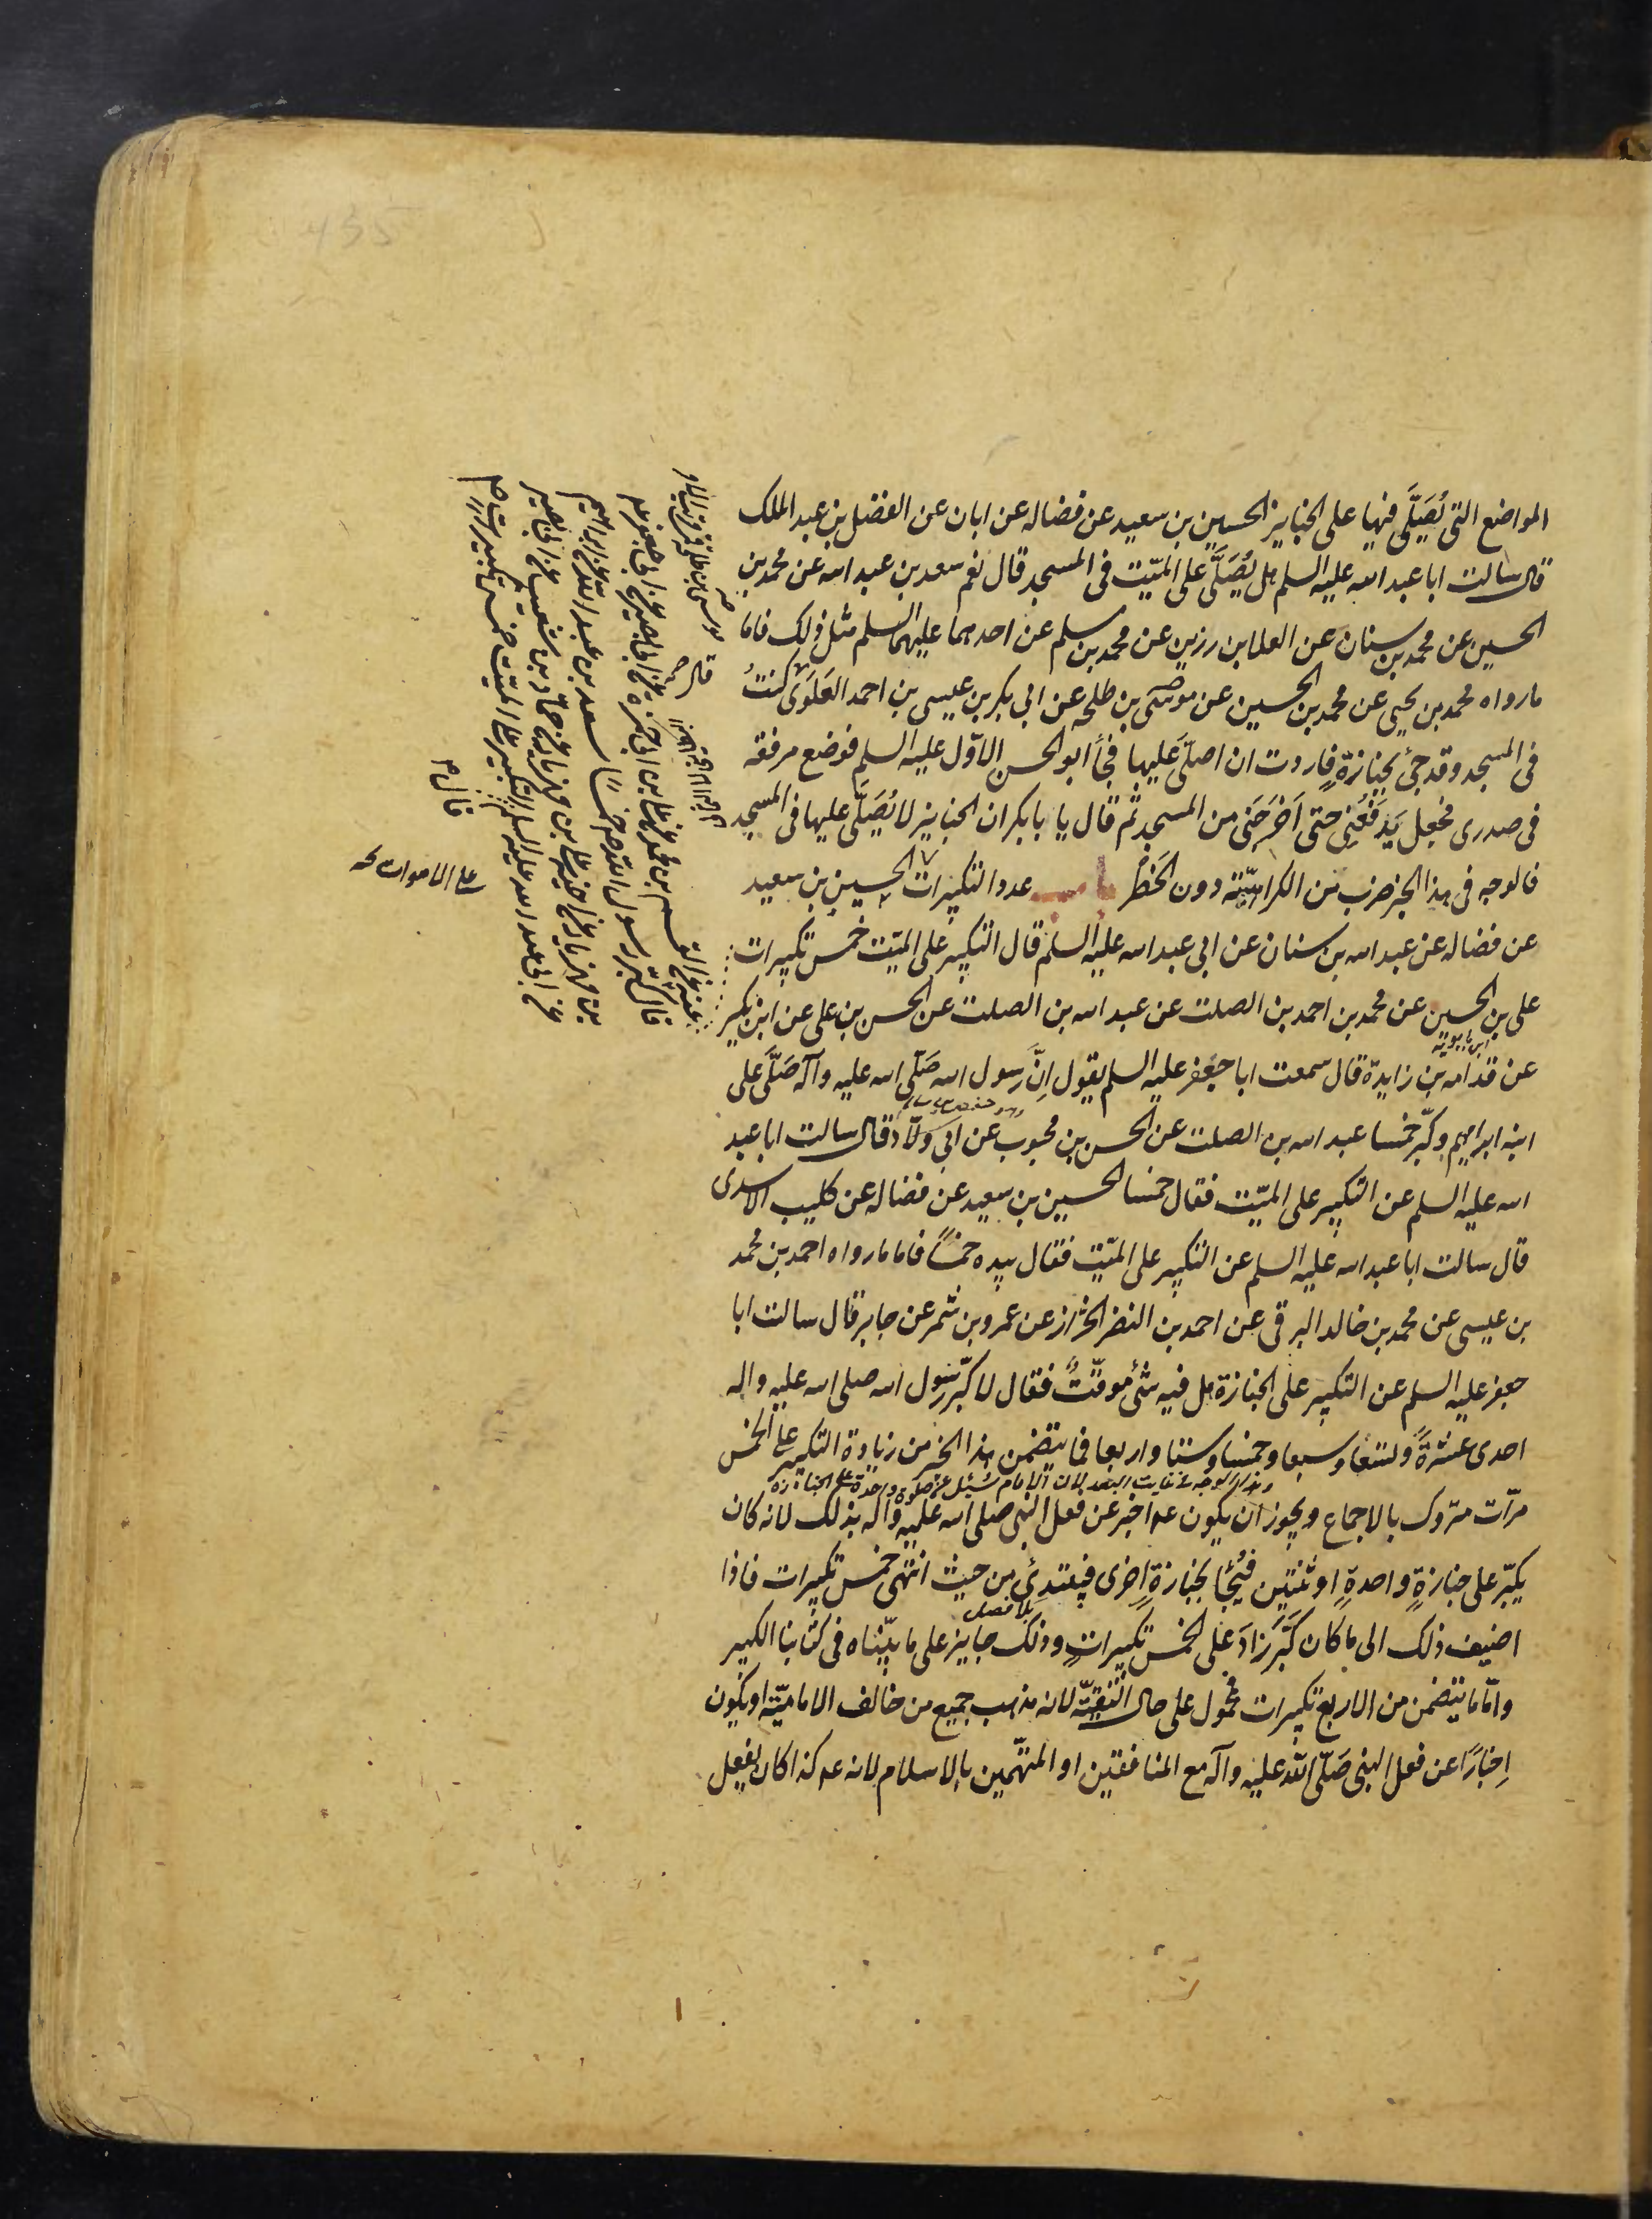 المواضع التي يُصَلَّى فيها على الجنايز الحسين بن سعيد عن فضاله عن ابان عن الفضل بن عبد الملك
قال سالت ابا عبد الله عليه السلم هل يُصَلَّى على الميّت فى المسجد قال نعم سعد بن عبد الله عن محمد بن
الحسين عن محمد بن سنان عن العلا بن رزين عن محمد بن مسلم عن احدهما عليهما السلم مثل ذلك فاما
ما رواه محمد بن يحيى عن محمد بن الحسين عن موسى بن طلحه عن ابى بكر بن عيسى بن احمد العَلَوى كنتُ
فى المسجد وقد جئ بجنازةٍ فاردت ان اصلّى عَليها فجأ ابو الحسن الاوّل عليه السلم فوضع مرفقه
فى صدرى فجعل يَدفَعُنى حتى اَخرَجَنى من المسجد ثم قال يا بابكر ان الجنايز لا يُصَلّى عليها فى المسجد
فالوجه فى هذا الخبر ضرب من الكراهيّة دون الحَظر باب عدد التكبيرات الحسين بن سعيد
عن فضاله عن عبد الله بن سنان عن ابى عبد الله عليه السلم قال التكبير على الميّت خمس تكبيرات
على بن الحسين عن محمد بن احمد بن الصلت عن عبد الله بن الصلت عن الحسن بن على عن ابن بكير
ابن بابويه
عن قدامه بن زايدة قال سمعت ابا جعفر عليه السلم يقول اِنَّ رَسول الله صَلّى الله عليه وآله صَلَّى على
ابنه ابراهيم وكبّر خمسا عبد الله بن الصلت عن الحسن بن محبوب عن ابى ولّاد قال سالت ابا عبد
الله عليه السلم عن التكبير على الميّت فقال خمسا الحسين بن سعيد عن فضاله عن كليب الاسدى
قال سالت ابا عبد الله عليه السلم عن التكبير على الميّت فقال بيده خمساً فاما ما رواه احمد بن محمد
بن عيسى عن محمد بن خالد البرقى عن احمد بن النضر الخزاز عن عمرو بن شمر عن جابر قال سالت ابا
جعفر عليه السلم عن التكبير على الجنازة هل فيه شئ موقّتٌ فقال لا كبّر رسول الله صلى الله عليه واله
احدى عشرةً وتسعا وسبعا وخمسا وستا واربعا فما يتضمن هذا الخبر من زيادة التكبير على الخمس
وهذا الوجه فى غايت البعد لان الامام سُئل عن صلوة واحدة على الجنازة
مرّات متروك بالاجماع ويجوز ان يكون ع اخبر عن فعل النبى صلى الله عليه واله بذلك لانه كان
يكبّر على جنازةٍ واحدةٍ او ثنتين فيُجٰا بجنازةٍ اخرى فيبتدئ من حيث انتهى خمس تكبيرات فاذا
بلا فصل
اضيف ذلك الى ما كان كبَّر زادَ على الخمس تكبيراتٍ وذلك جايز على ما بيّناه فى كتابنا الكبير
وامّا ما يتضمن من الاربع تكبيرات فمحمول على حال التقيّة لانه مذهب جميع من خالف الاماميّة او يكون
اِخبارًا عن فعل النبى صَلّى الله عليه وآله مع المنافقين او المتّهمين بالاسلام لانه ع كذا كان يفعل
قال
عنه عن القسم بن محمد عن على بن ابى حمزه عن ابى بصير عن ابى جعفر ع
قال كبّر رسول الله ص خمسًا سعد بن عبد الله عن ابراهيم
بن مهزيار عن اخيه على بن مهزيار عن حماد بن شعيب عن ابى بصير
عن ابى عبد الله عليه السلم التكبير على الميّت خمس تكبيرات
قال
على الاموات